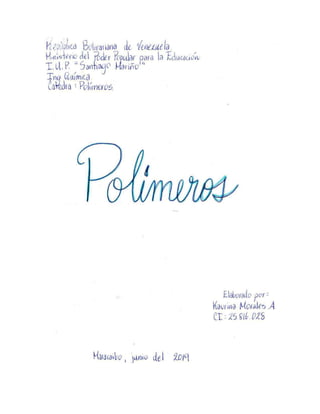 República Bolivariana de Venezuela
Ministerio del Poder Popular para la Educación
I.U.P. "Santiago Mariño"
Ing Química
Catedra: Polímeros
Polímeros
Elaborado por:
Morales A
CI: 25.816.028
Maracaibo, junio del 2019